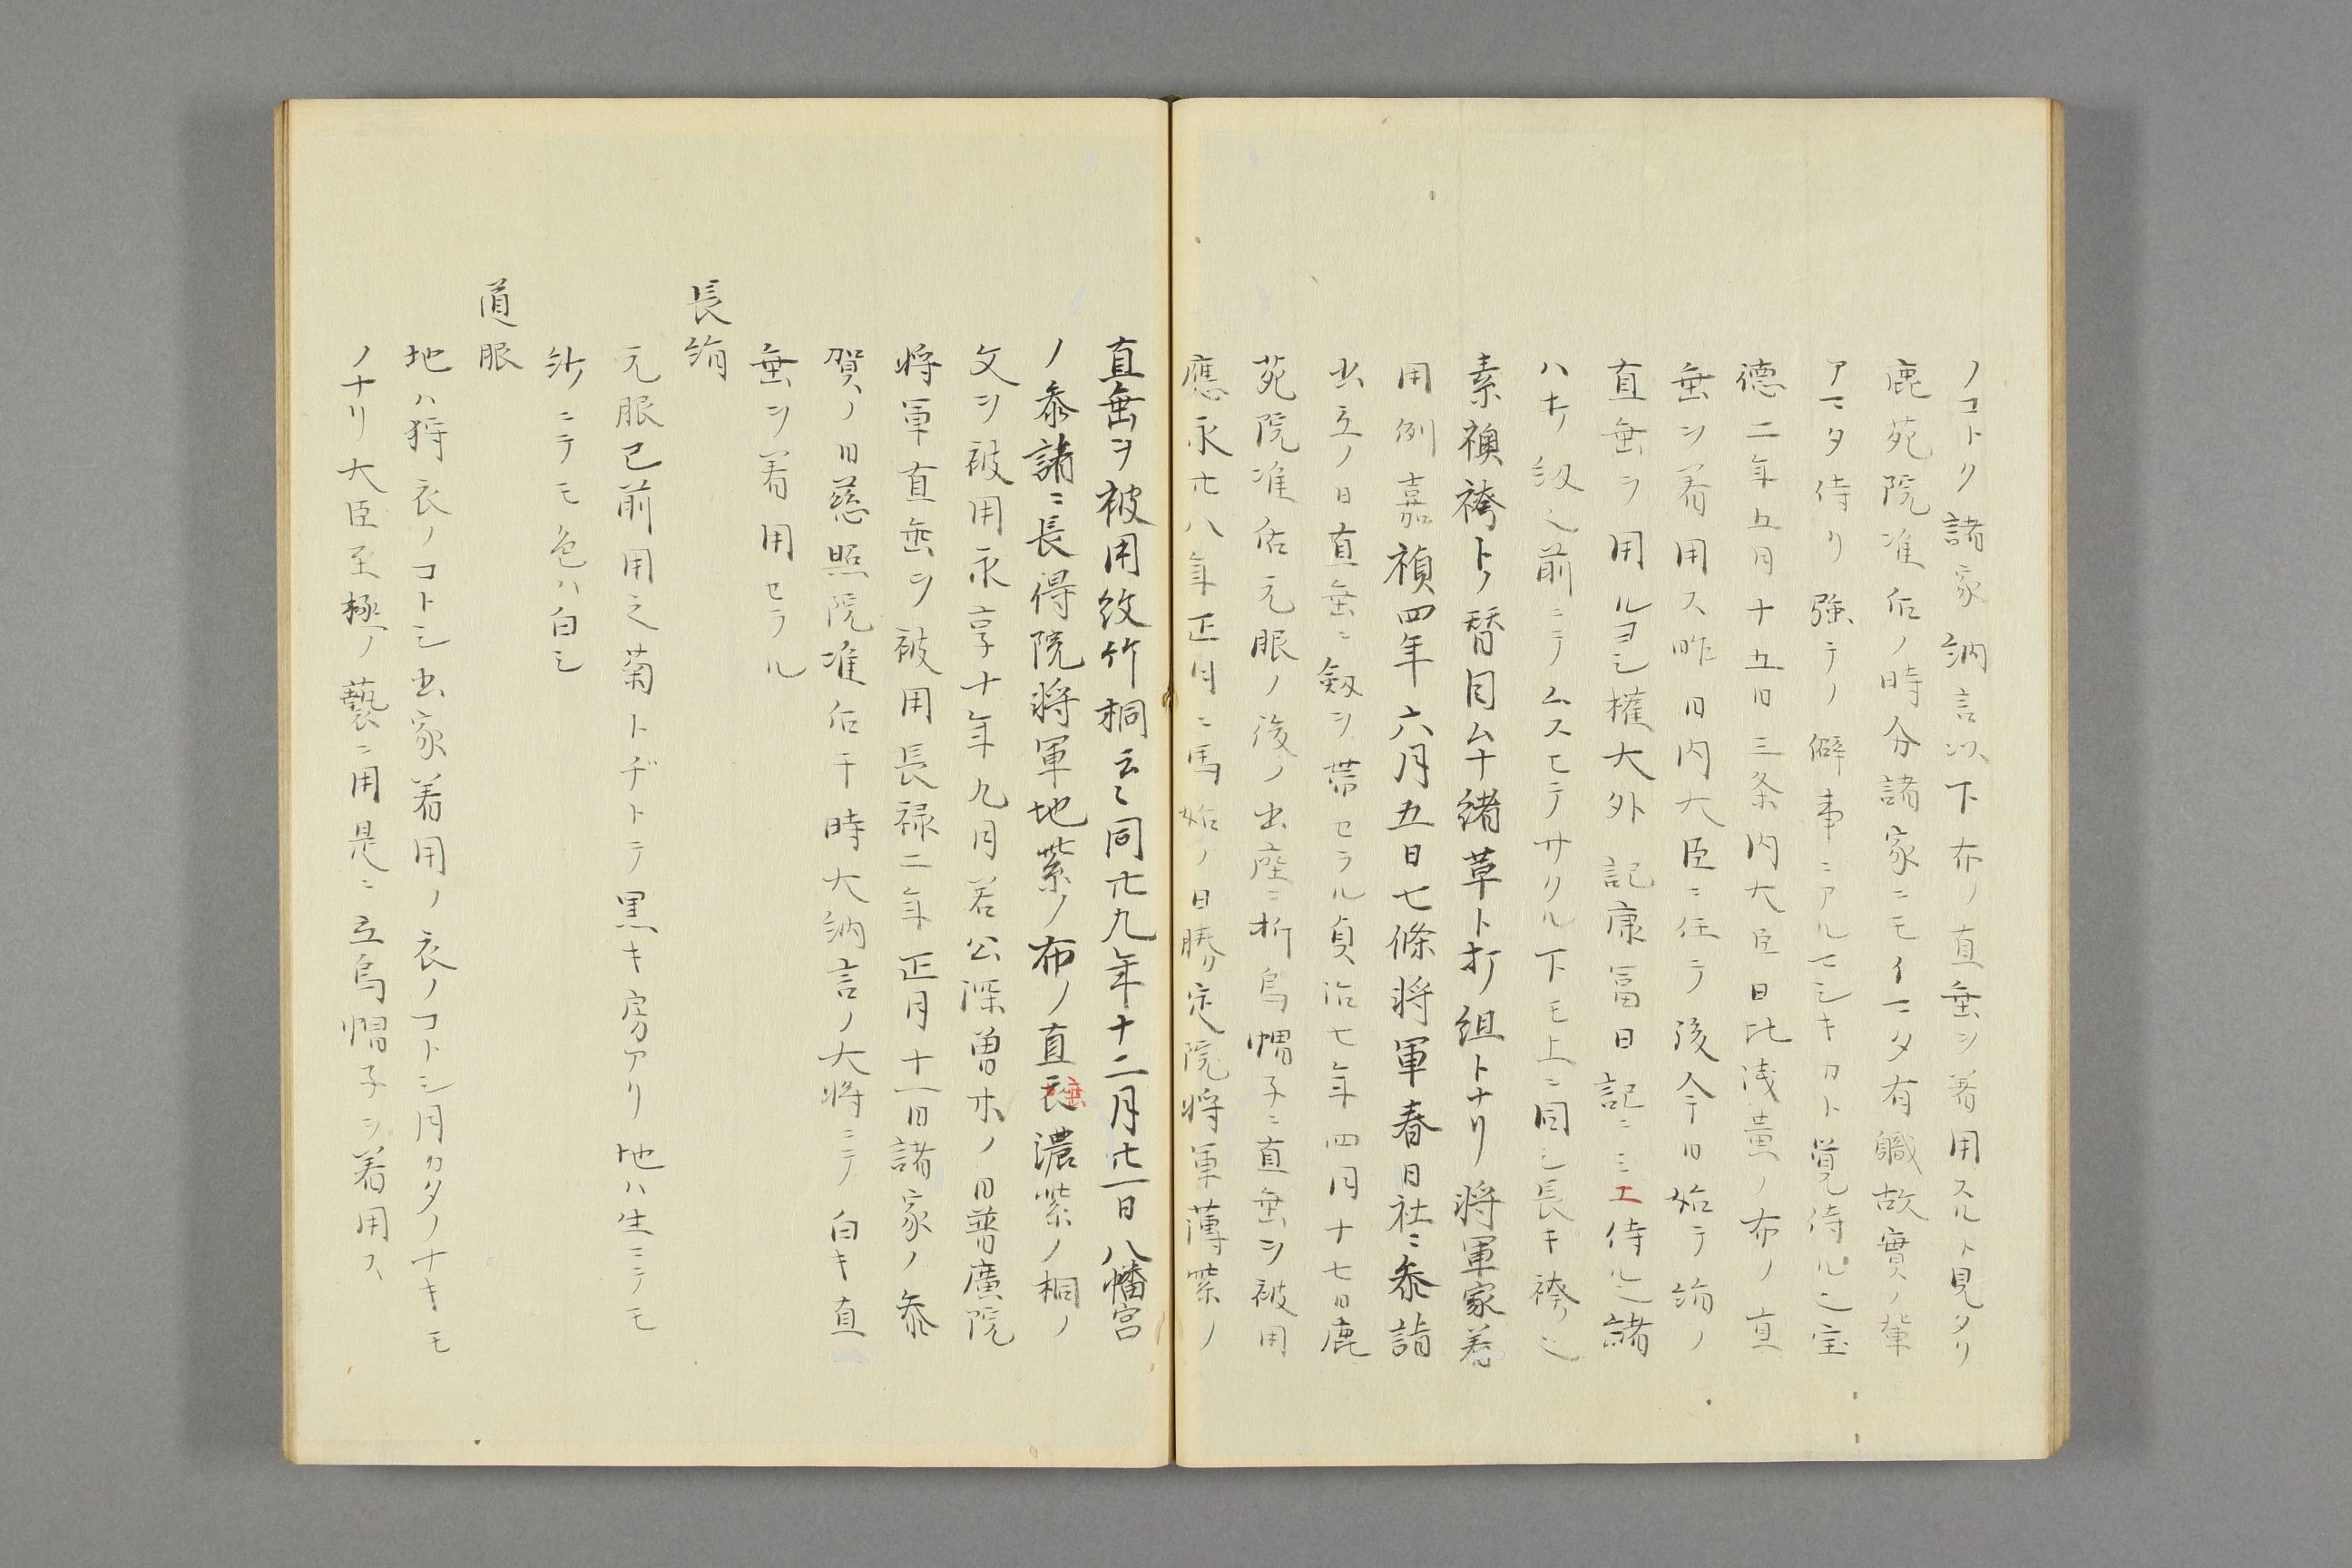 ノコトク諸家納言以下布ノ直垂ヲ着用スルト見タリ
鹿苑院准后ノ時分諸家ニモイマタ有職故實ノ輩
アマタ侍リ強テノ僻事ニアルマシキカト覚侍ル也宝
徳二年五月十五日三条内大臣日比浅黄ノ布ノ直
垂ヲ着用ス昨日内大臣ニ任テ後今日始テ絹ノ
直垂ヲ用ルヨシ權大外記康冨日記ニミエ侍ル也諸
ハキ之前ニテムスヒテサクル下モ上ニ同シ長キ袴也
素襖袴ト替目ムナ緒革ト打ノ組トナリ将軍家着
用例嘉禎四年六月五日七條将軍春日社ニ参詣
出立ノ日直垂ニ剱ヲ帯セラル貞治七年四月十七日鹿
苑院准后元服ノ後ノ出座ニ折烏帽子ニ直垂ヲ被用
應永廿八年正月ニ馬始ノ日勝定院将軍薄紫ノ
直垂ヲ被用紋竹桐云〻同廿九年十二月廿一日八幡宮
ノ参諸ニ長得院将軍地紫ノ布ノ直衣垂濃紫ノ桐ノ
文ヲ被用永享十年九月若公深曽木ノ日普廣院
将軍直垂ヲ被用長禄二年正月十一日諸家ノ参
賀ノ日慈照院准后干時大納言ノ大将ニテ白キ直
垂ヲ着用セラル
長絹
元服已前用之菊トヂトテ黒キ房アリ地ハ生ニテモ
紗ニテモ色ハ白シ
道服
地ハ狩衣ノコトシ出家着用ノ衣ノコトシ月カタノナキモ
ノナリ大臣至極ノ褻ニ用是ニ立烏帽子ヲ着用ス